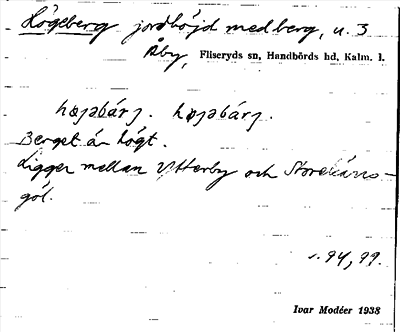 Högeberg jordhöjd med berg, u. 3
Åby, Fliseryds sn, Handbörds hd, Kalm. l.
Berget är högt.
Ligger mellan Ytterby och
göl.
s. 94, 99.
Ivar Modéer 1938